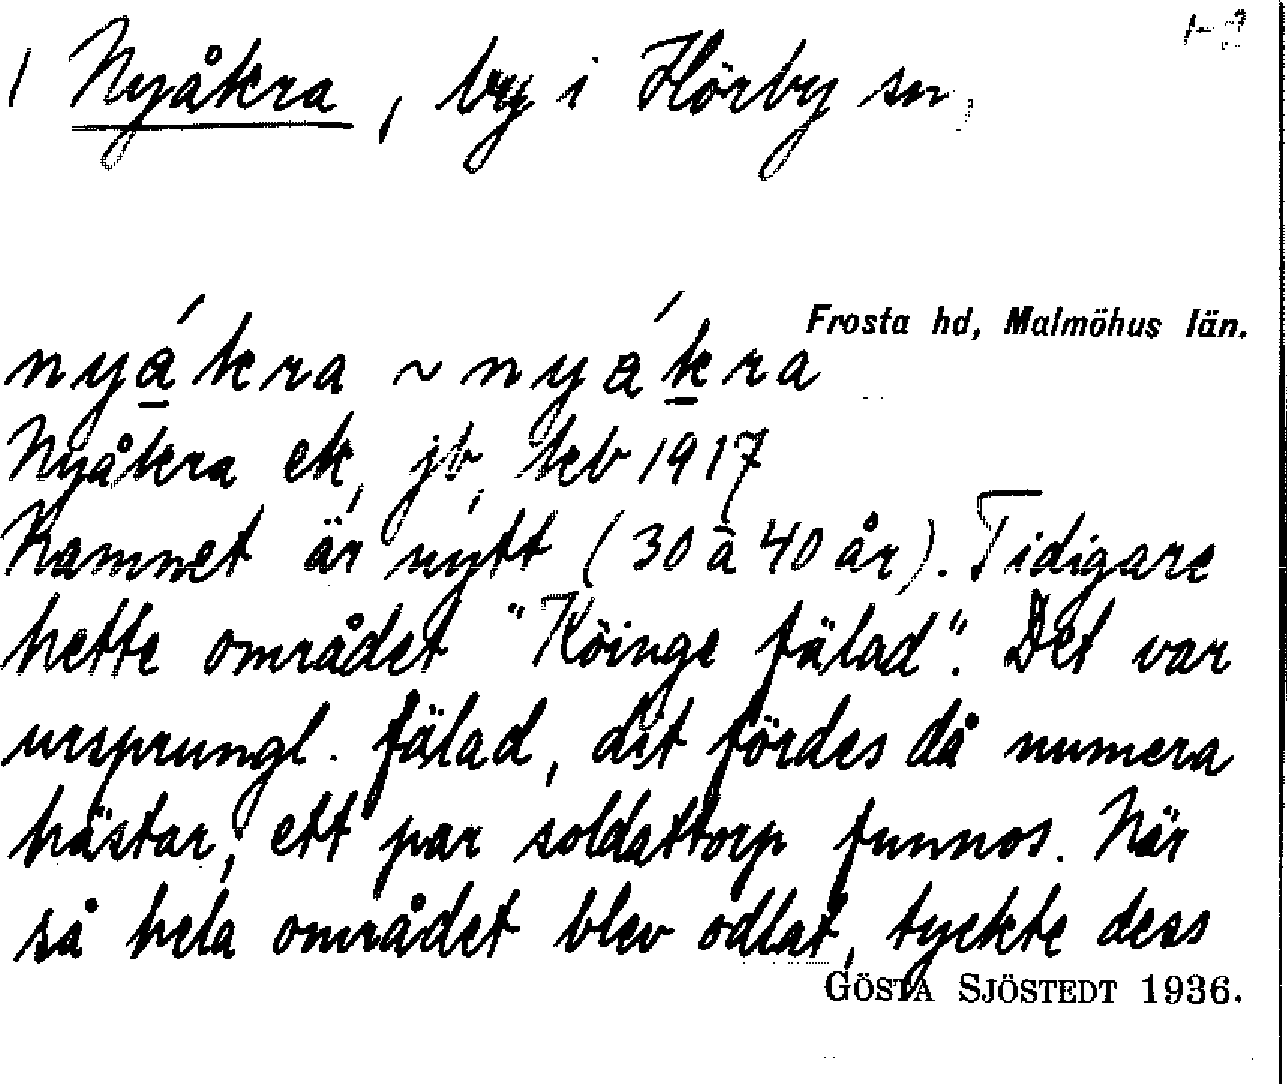 / Nyåkra, by i Hörby sn,
Frosta hd, Malmöhus län.
nyákra ~ nyákra
Nyåkra ek, jb, kcb 1917
Namnet är nytt (30 à 40 år). Tidigare
hette området "Köinge fälad". Det var
ursprungl. fälad, dit fördes då numera
hästar, ett par soldattorp funnos. När
så hela området blev odlat, tyckte dess
GÖSTA SJÖSTEDT 1936.